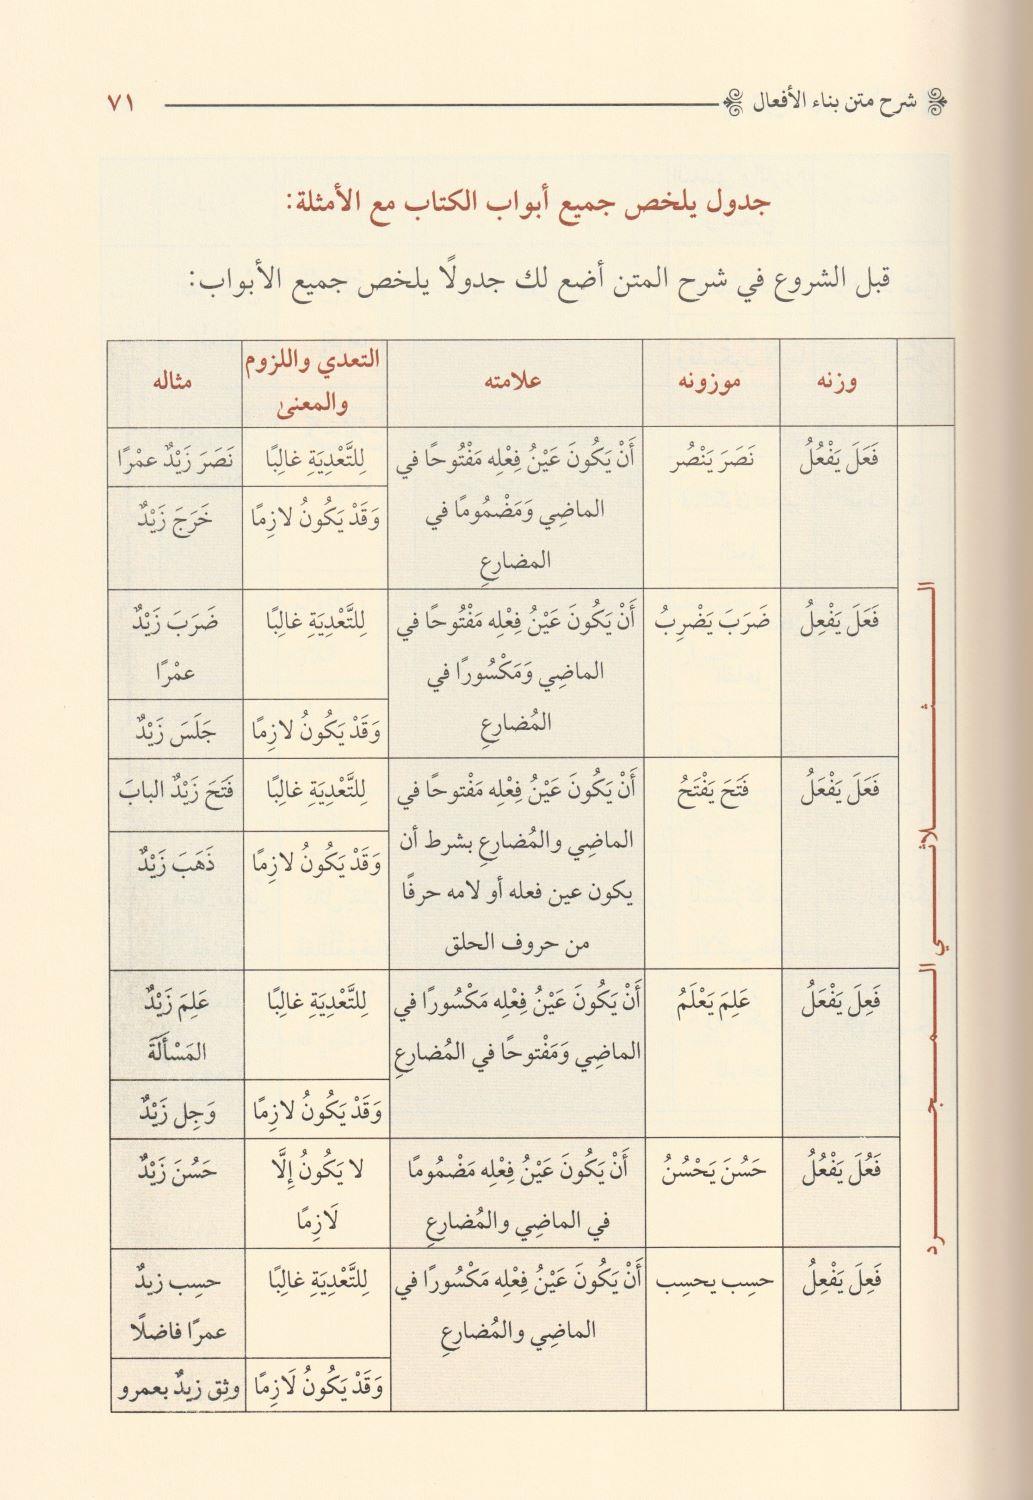 شرح متن بناء الأفعال ٧١
جدول يلخص جميع أبواب الكتاب مع الأمثلة:
قبل الشروع في شرح المتن أضع لك جدولًا يلخص جميع الأبواب:
وزنه
موزونه
علامته
التعدي واللزوم
والمعنىٰ
مثاله
الثلاثي المجرد
فَعَلَ يَفْعُلُ
نَصَرَ يَنْصُر
أَنْ يَكُونَ عَيْنُ فِعْلِه مَفْتُوحًا في
الماضِي وَمَضْمُومًا في
المضارعِ
لِلتَّعْدِيَةِ غالِبًا
نَصَرَ زَيْدٌ عمْرًا
وَقَدْ يَكُونُ لازِمًا
خَرَجَ زَيْدٌ
فَعَلَ يَفْعِلُ
ضَرَبَ يَضْرِبُ
أَنْ يَكُونَ عَيْنُ فِعْلِه مَفْتُوحًا في
الماضِي وَمَكْسُورًا في
المُضارعِ
لِلتَّعْدِيَةِ غالِبًا
ضَرَبَ زَيْدٌ
عمْرًا
وَقَدْ يَكُونُ لازِمًا
جَلَسَ زَيْدٌ
فَعَلَ يَفْعَلُ
فَتَحَ يَفْتَحُ
أَنْ يَكُونَ عَيْنُ فِعْلِه مَفْتوحًا في
الماضِي والمُضارعِ بشرط أن
يكون عين فعله أو لامه حرفًا
من حروف الحلق
لِلتَّعْدِيَةِ غالِبًا
فَتَحَ زَيْدٌ البابَ
وَقَدْ يَكُونُ لازِمًا
ذَهَبَ زَيْدٌ
فَعِلَ يَفْعَلُ
عَلِمَ يَعْلَمُ
أَنْ يَكُونَ عَيْنُ فِعْلِه مَكْسُورًا في
الماضِي وَمَفْتوحًا في المُضارعِ
لِلتَّعْدِيَةِ غالِبًا
عَلِمَ زَيْدٌ
المَسْأَلَةَ
وَقَدْ يَكُونُ لازِمًا
وَجِل زَيْدٌ
فَعُلَ يَفْعُلُ
حَسُنَ يَحْسُنُ
أَنْ يَكُونَ عَيْنُ فِعْلِه مَضْمُومًا
في الماضِي والمُضارعِ
لا يَكُونُ إِلَّا
لَازِمًا
حَسُنَ زَيْدٌ
فَعِلَ يَفْعِلُ
حسِب يحسِب
أَنْ يَكُونَ عَيْنُ فِعْلِه مَكْسُورًا في
الماضِي والمُضارعِ
لِلتَّعْدِيَةِ غالِبًا
حسِب زيدٌ
عمرًا فاضلًا
وَقَدْ يَكُونُ لَازِمًا
وثِق زيدٌ بعمرو